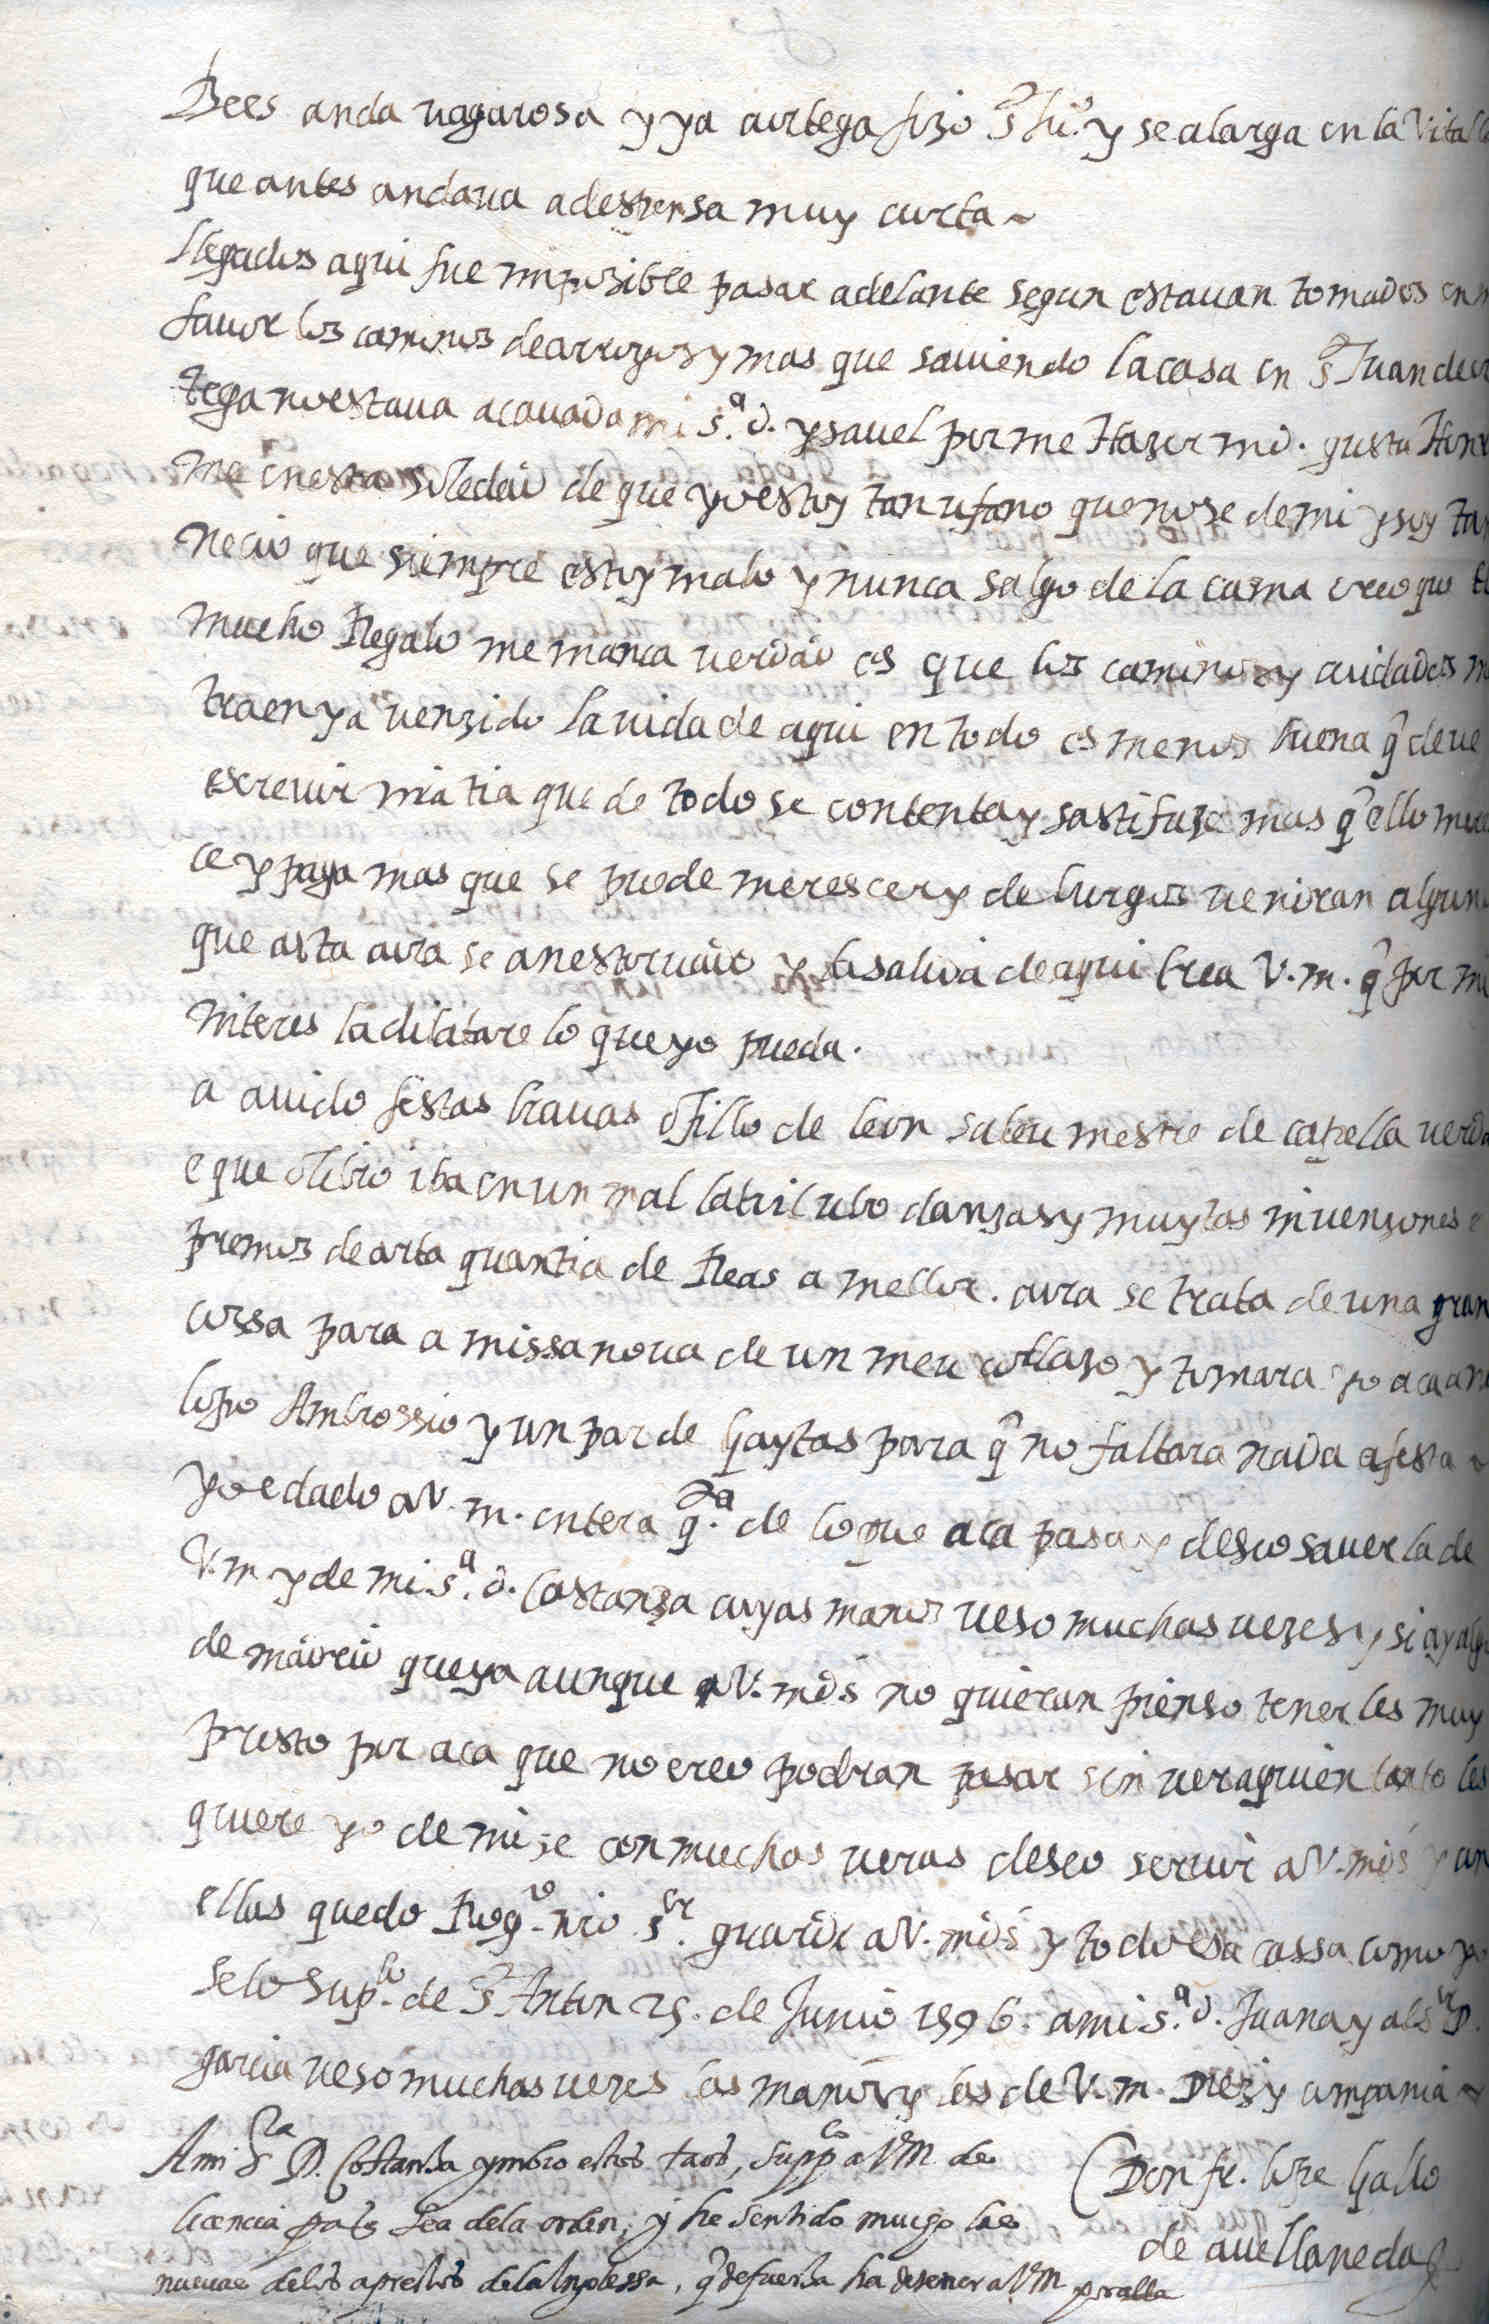 Bees anda vagarosa y ya ortega hizo S Ju.º y se alarga en la Vitall
que antes andaua a despensa muy corta ~
llegados aqui fue imposible pasar adelante segun estauan tomados en
fauor los caminos de arroyos y mas que sauiendo la casa en S Juan de or
tega no estaua acauada mi s.ª d. ysauel por me Hazer md. gusta
me en esta soledad de que yo estoy tan ufano que no se de mi y soy tan
necio que siempre estoy malo y nunca salgo de la cama creo que el
mucho Regalo me manca verdad es que los caminos y cuidados m
traen ya venzido la uida de aqui en todo es menos buena q̃ deue
escreuir mia tia que de todo se contenta y sastifaze mas q̃ ello mere
ce y paga mas que se puede merescer y de burgos veniran algun
que asta ora se an estoruado y la salida de aqui crea V. m. q̃ por mi
interes la dilatare lo que yo pueda.
a auido festas brauas o fillo de leon saleu mestre de capella verda
e que o libro iba en un mal latril ubo danzas y muytas inuenzones e
premios de arta quantia de Reas a mellor. ora se trata de una gran
cossa para a missa noua de un meu collazo y tomara yo aca a
lopo Ambrossio y un par de gaytas para q̃ no faltara nada a festa ~
yo e dado a V. m. entera q.ta de lo que aca pasa y deseo sauer la de
V. m y de mi s.ª d. Costanza cuyas manos veso muchas vezes y si ay algo
de madrid que ya aunque a V. mds no quieran pienso tenerles muy
presto por aca que no creo podran pasar sin ver a quien tanto les
quiere yo de mi se con muchas veras deseo seruir a V. mds y con
ellas quedo Rog.do nro sr. guarde a V. mds y toda esa cassa como yo
se lo sup.co de S Anton 25. de Junio 1596. a mi s.ª d. Juana y al sr D.
garcia veso muchas vezes las manos y las de V. m. Diez y compania ~
Don fr. lope gallo
de auellaneda
A mi S.ra D. Costanza ymbio estos taos, supp.co a VM de
licencia para q̃ sea de la orden, y he sentido mucho las
nueuas de los aprestos de la Inglessa, q̃ de fuerza ha de tener a VM por alla